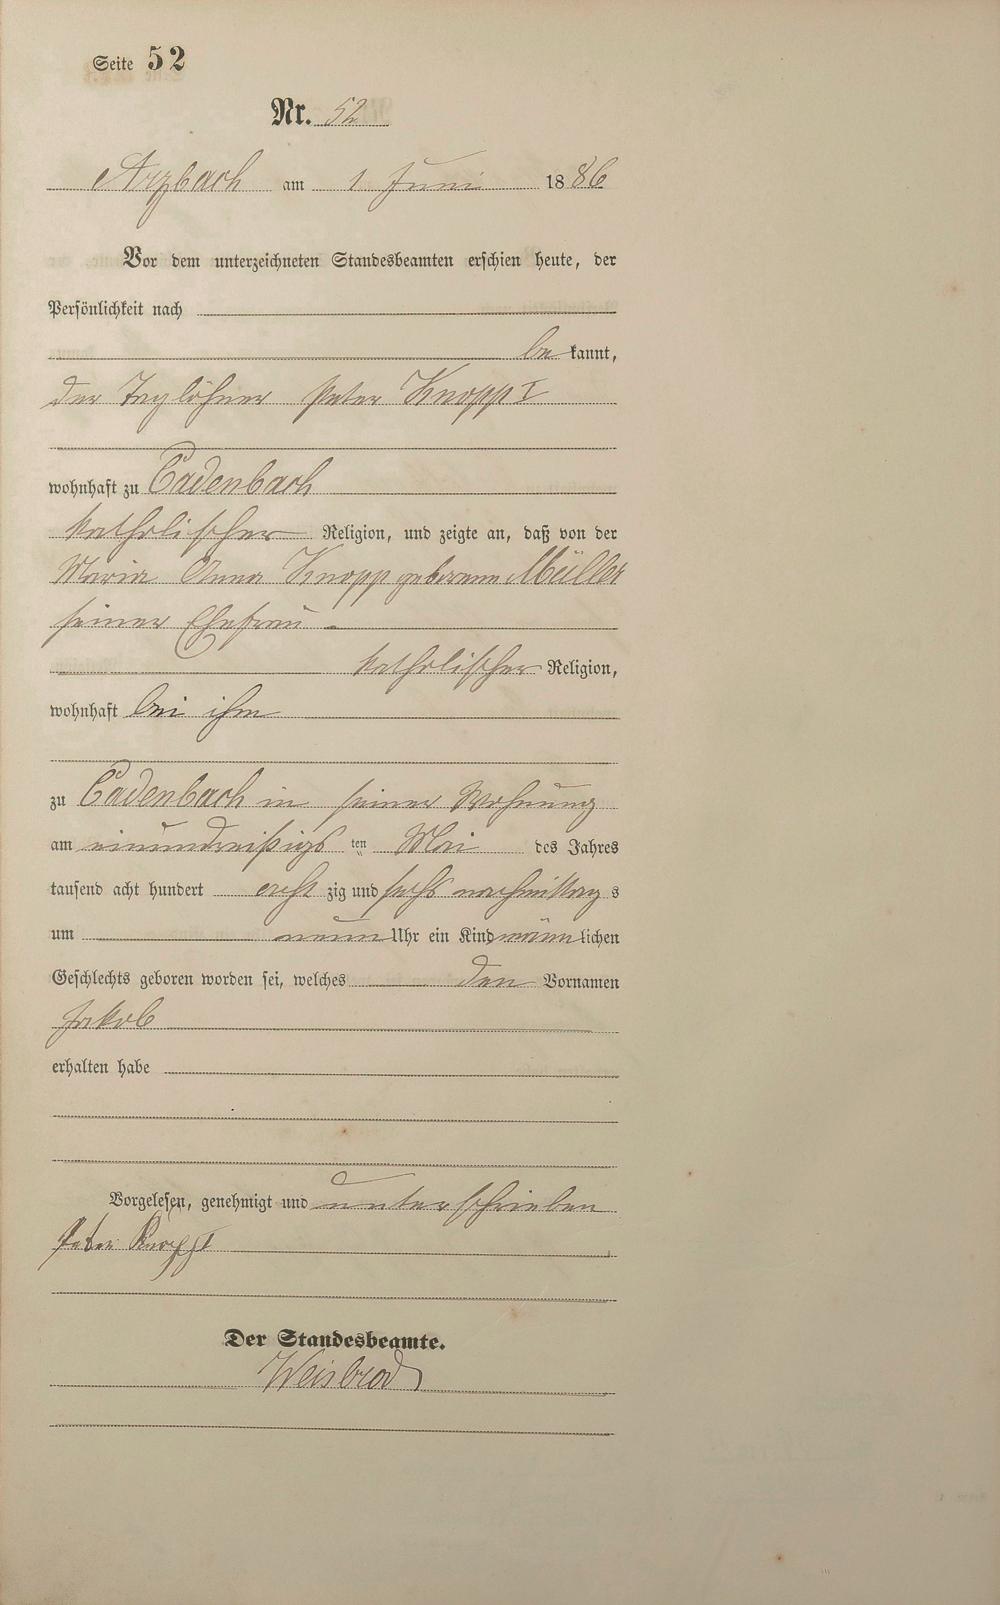 Seite 52
Nr. 52
Arzbach am 1 Juni 1886
Vor dem unterzeichneten Standesbeamten erschien heute, der
Persönlichkeit nach
be kannt,
der Taglöhner Peter Knopp I
wohnhaft zu Cadenbach
katholischer Religion, und zeigte an, daß von der
Maria Anna Knopp geborenen Müller
seiner Ehefrau
katholischer Religion,
wohnhaft bei ihm
zu Cadenbach in seiner Wohnung
am einunddreißigs ten Mai des Jahres
tausend acht hundert acht zig und sechs nachmittag s
um neun Uhr ein Kind männlichen
Geschlechts geboren worden sei, welches den Vornamen
Jakob
erhalten habe
Vorgelesen, genehmigt und unterschrieben
Peter Knopp I
Der Standesbeamte.
Weisbrod